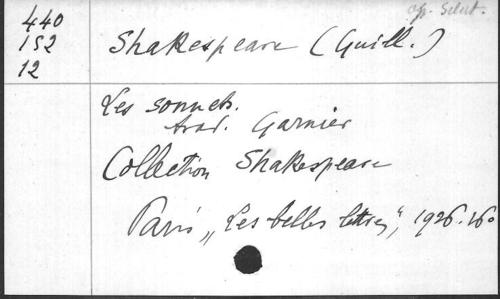 op. Select.
440
152
12
Shakespeare (Guill.)
Les sonnets.
trad. Garnier
Collection Shakespeare
Paris „Les belles lettres", 1926. 16°